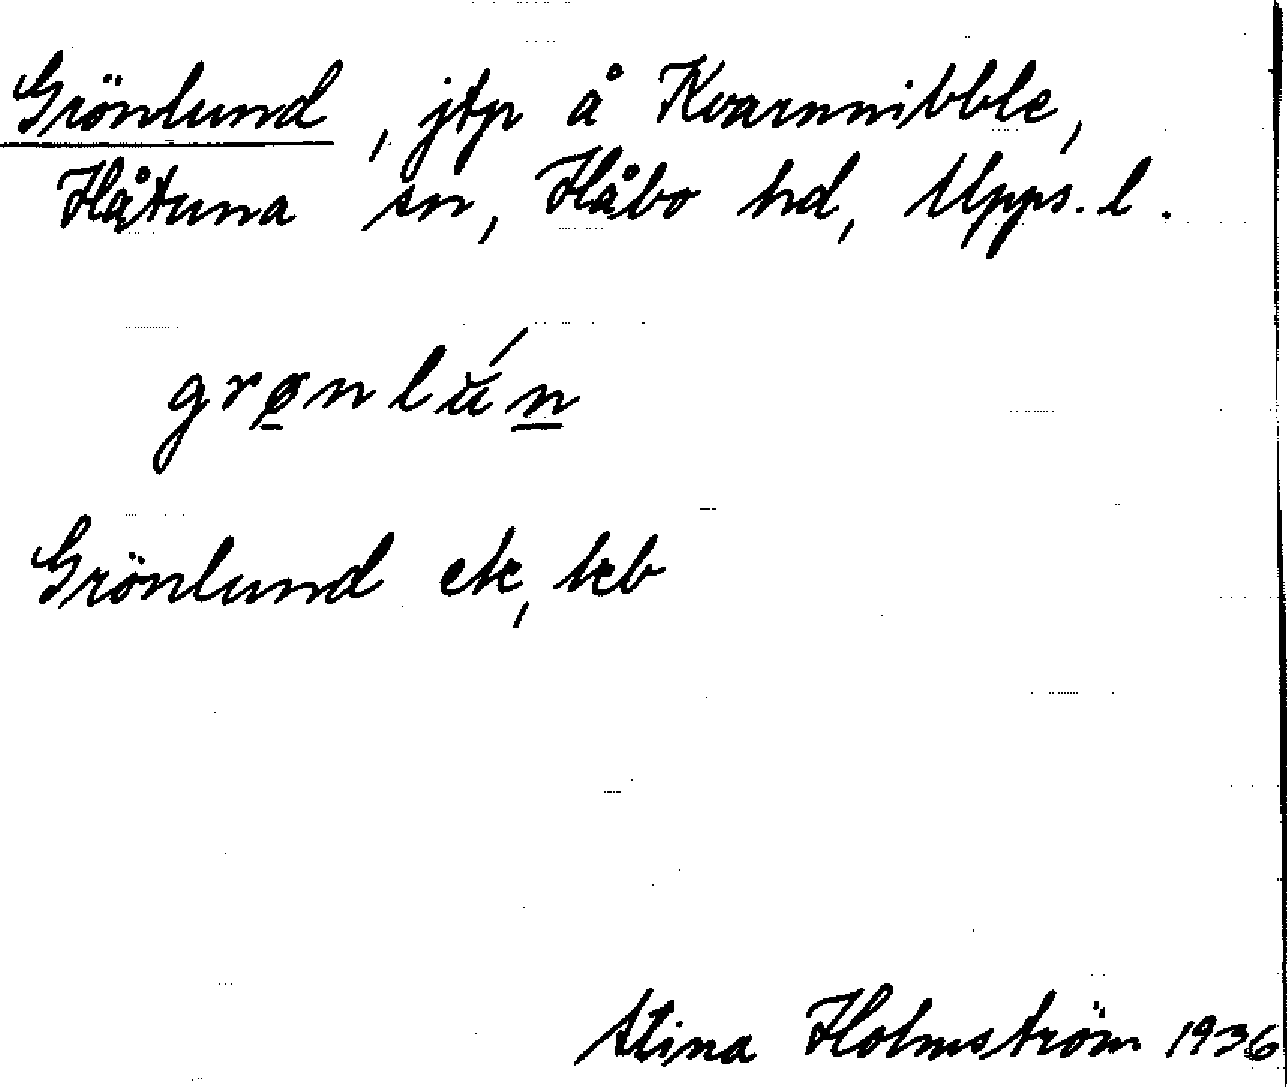 Grönlund, jtp å Kvarnnibble,
Håtuna sn, Håbo hd, Upps. l.
grø̱nlú̆n̲
Grönlund ek, kb
Stina Holmström 1936